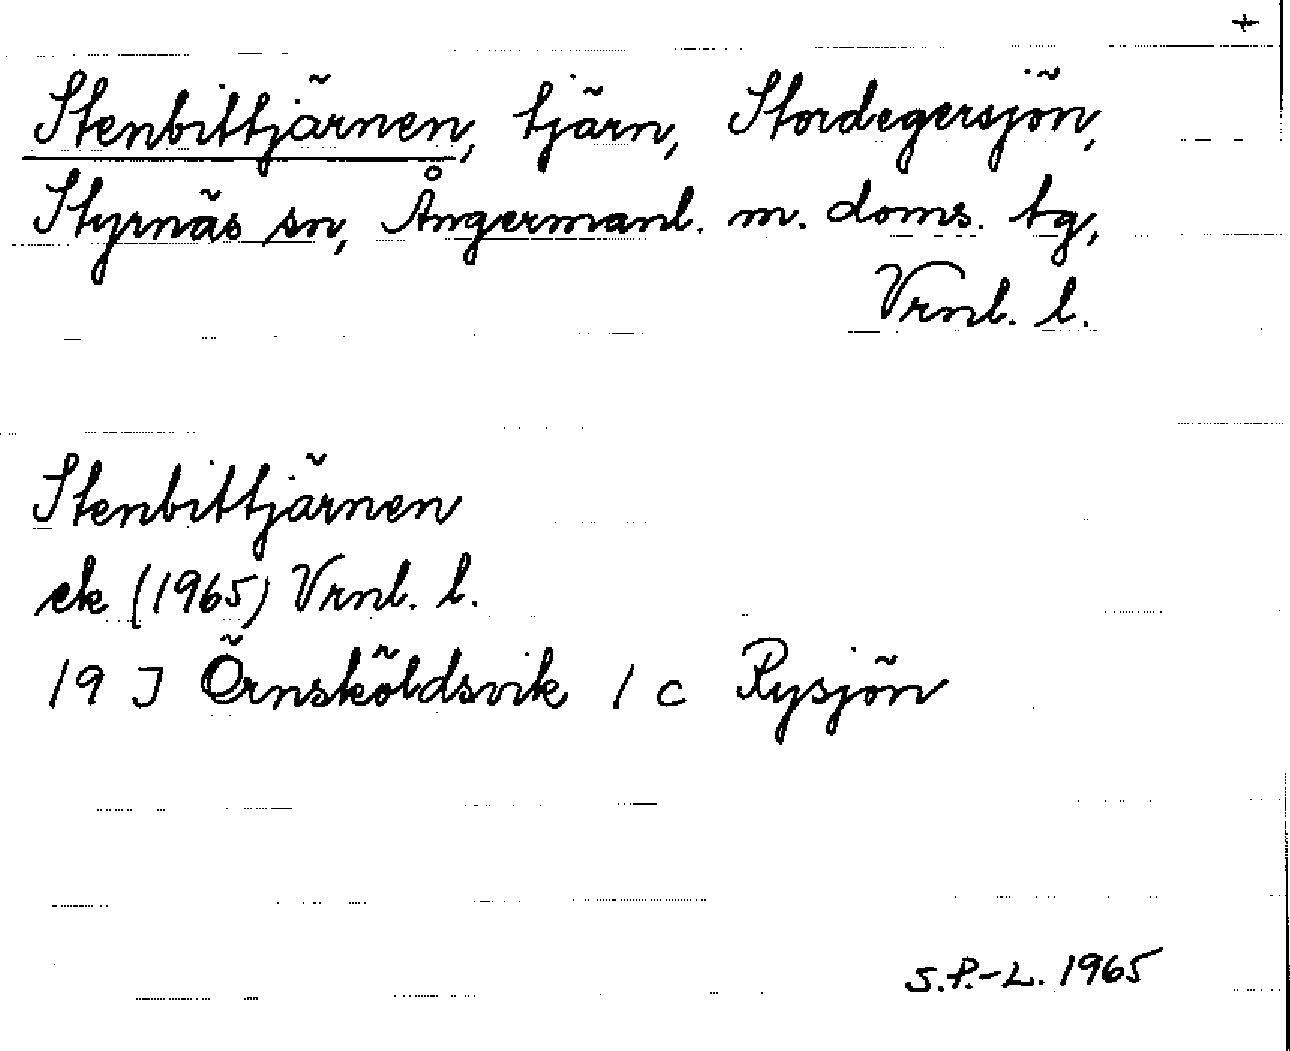 +
Stenbittjärnen, tjärn, Stordegersjön,
Styrnäs sn, Ångermanl. m. doms. tg,
Vrnl. l.
Stenbittjärnen
ek (1965) Vrnl. l.
19 J Örnsköldsvik 1 c Rysjön
S.P.-L. 1965